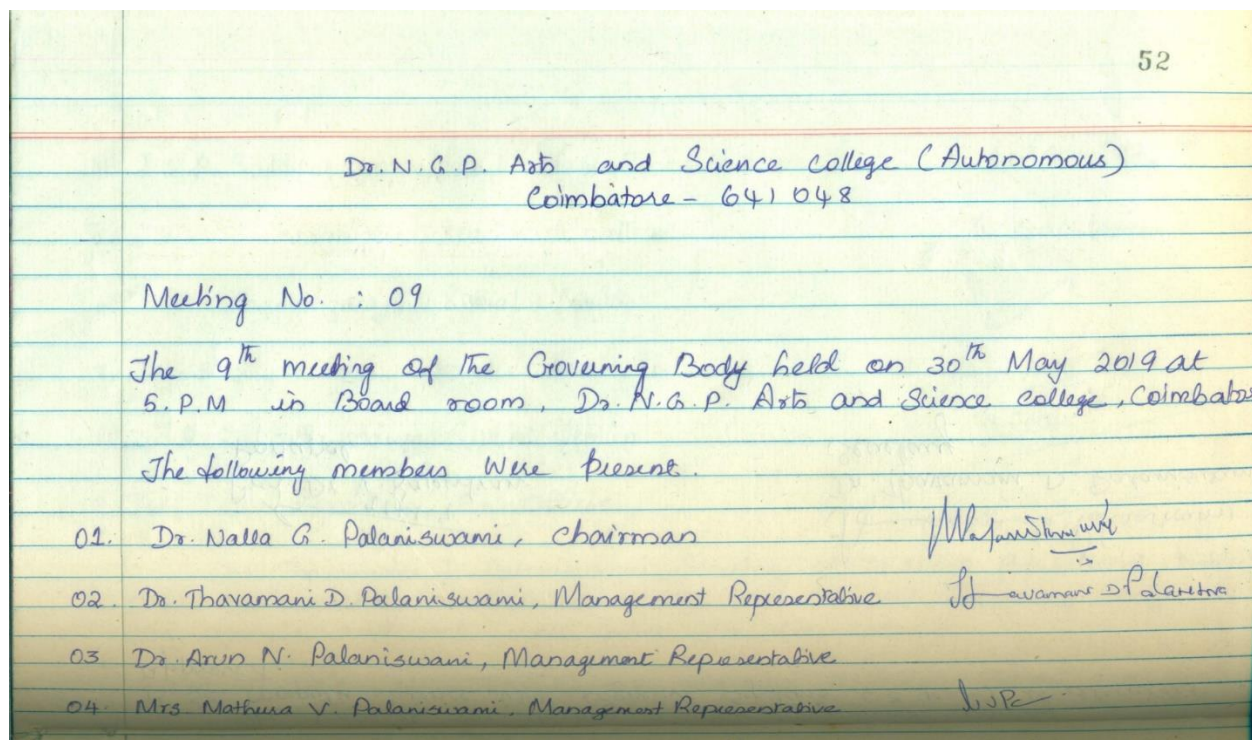 52
Dr. N. G. P. Arts and Science college (Autonomous)
Coimbatore - 641 048
Meeting No. : 09
The 9th meeting of the Governing Body held on 30th May 2019 at
5. P.M in Board room, Dr. N. G. P. Arts and Science college, Coimbator
The following members were present.
01. Dr. Nalla G. Palaniswami, Chairman
02. Dr. Thavamani D. Palaniswami, Management Representative
03 Dr. Arun N. Palaniswami, Management Representative
04. Mrs Mathura V. Palaniswami, Management Representative